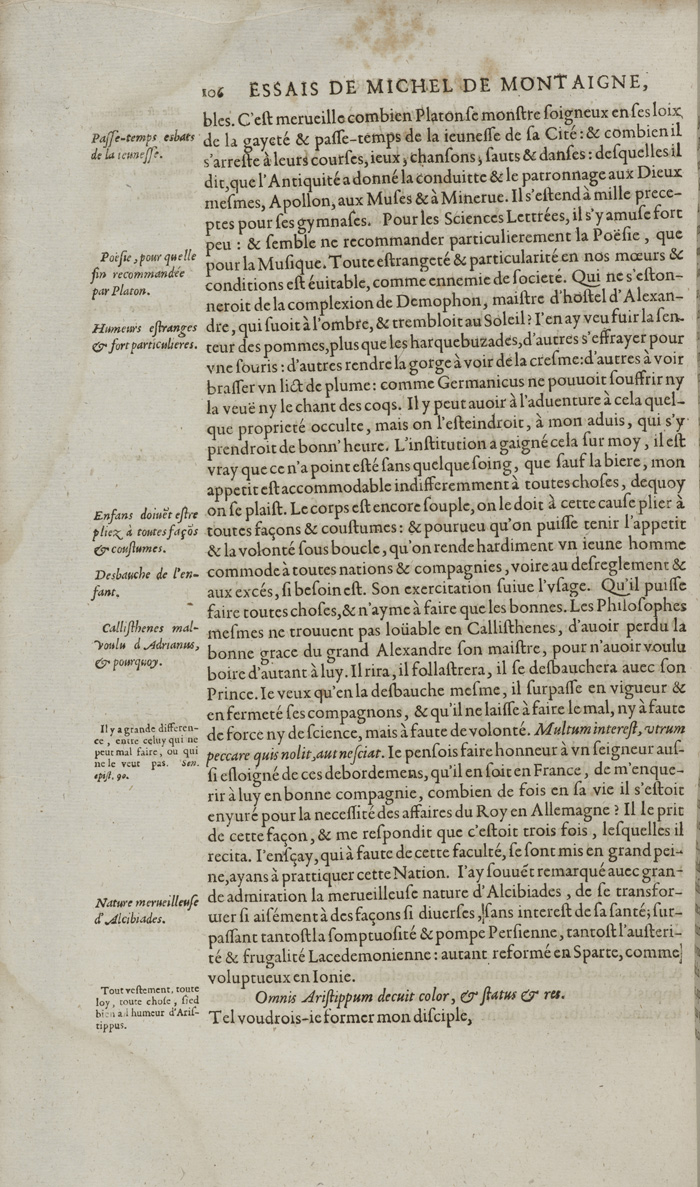 106 ESSAIS DE MICHEL DE MONTAIGNE,
bles. C'eſt merueille combien Platon ſe monſtre ſoigneux en ſes loix,
de la gayeté & paſſe-temps de la ieuneſſe de ſa Cité: & combien il
s'arreſte à leurs courſes, ieux, chanſons, ſauts & danſes: deſquelles il
dit, que l'Antiquité a donné la conduitte & le patronnage aux Dieux
meſmes, Apollon, aux Muſes & à Minerue. Il s'eſtend à mille prece-
ptes pour ſes gymnaſes. Pour les Sciences Lettrées, il s'y amuſe fort
peu: & ſemble ne recommander particulierement la Poëſie, que
pour la Muſique. Toute eſtrangeté & particularité en nos mœurs &
conditions eſt éuitable, comme ennemie de ſocieté. Qui ne s'eſton-
neroit de la complexion de Demophon, maiſtre d'hoſtel d'Alexan-
dre, qui ſuoit à l'ombre, & trembloit au Soleil? I'en ay veu fuir la ſen-
teur des pommes, plus que les harquebuzades, d'autres s'effrayer pour
vne ſouris: d'autres rendre la gorge à voir de la creſme: d'autres à voir
braſſer vn lict de plume: comme Germanicus ne pouuoit ſouffrir ny
la veuë ny le chant des coqs. Il y peut auoir à l'aduenture à cela quel-
que proprieté occulte, mais on l'eſteindroit, à mon aduis, qui s'y
prendroit de bonn' heure. L'inſtitution a gaigné cela ſur moy, il eſt
vray que ce n'a point eſté ſans quelque ſoing, que ſauf la biere, mon
appetit eſt accommodable indifferemment à toutes choſes, dequoy
on ſe plaiſt. Le corps eſt encore ſouple, on le doit à cette cauſe plier à
toutes façons & couſtumes: & pourueu qu'on puiſſe tenir l'appetit
& la volonté ſous boucle, qu'on rende hardiment vn ieune homme
commode à toutes nations & compagnies, voire au deſreglement &
aux excés, ſi beſoin eſt. Son exercitation ſuiue l'vſage. Qu'il puiſſe
faire toutes choſes, & n'ayme à faire que les bonnes. Les Philoſophes
meſmes ne trouuent pas loüable en Calliſthenes, d'auoir perdu la
bonne grace du grand Alexandre ſon maiſtre, pour n'auoir voulu
boire d'autant à luy. Il rira, il follaſtrera, il ſe deſbauchera auec ſon
Prince. Ie veux qu'en la deſbauche meſme, il ſurpaſſe en vigueur &
en fermeté ſes compagnons, & qu'il ne laiſſe à faire le mal, ny à faute
de force ny de ſcience, mais à faute de volonté. Multum intereſt, vtrum
peccare quis nolit, aut neſciat. Ie penſois faire honneur à vn ſeigneur auſ-
ſi eſloigné de ces debordemens, qu'il en ſoit en France, de m'enque-
rir à luy en bonne compagnie, combien de fois en ſa vie il s'eſtoit
enyuré pour la neceſſité des affaires du Roy en Allemagne? Il le prit
de cette façon, & me reſpondit que c'eſtoit trois fois, leſquelles il
recita. I'en ſçay, qui à faute de cette faculté, ſe ſont mis en grand pei-
ne, ayans à prattiquer cette Nation. I'ay ſouuẽt remarqué auec gran-
de admiration la merueilleuſe nature d'Alcibiades, de ſe transfor-
mer ſi aiſément à des façons ſi diuerſes, ſans intereſt de ſa ſanté; ſur-
paſſant tantoſt la ſomptuoſité & pompe Perſienne, tantoſt l'auſteri-
té & frugalité Lacedemonienne: autant reformé en Sparte, comme
voluptueux en Ionie.
Omnis Ariſtippum decuit color, & ſtatus & res.
Tel voudrois-ie former mon diſciple,
Paſſe-temps esbats
de la ieuneſſe.
Poëſie, pour quelle
fin recommandée
par Platon.
Humeurs eſtranges
& fort particulieres.
Enfans doiuẽt eſtre
pliez à toutes façõs
& couſtumes.
Desbauche de l'en-
fant.
Calliſthenes mal-
voulu d Adrianus,
& pourquoy.
Il y a grande differen-
ce, entre celuy qui ne
peut mal faire, ou qui
ne le veut pas. Sen.
epiſt. 90.
Nature merueilleuſe
d'Alcibiades.
Tout veſtement, toute
loy, toute choſe, ſied
bien à l humeur d'Ariſ-
tippus.